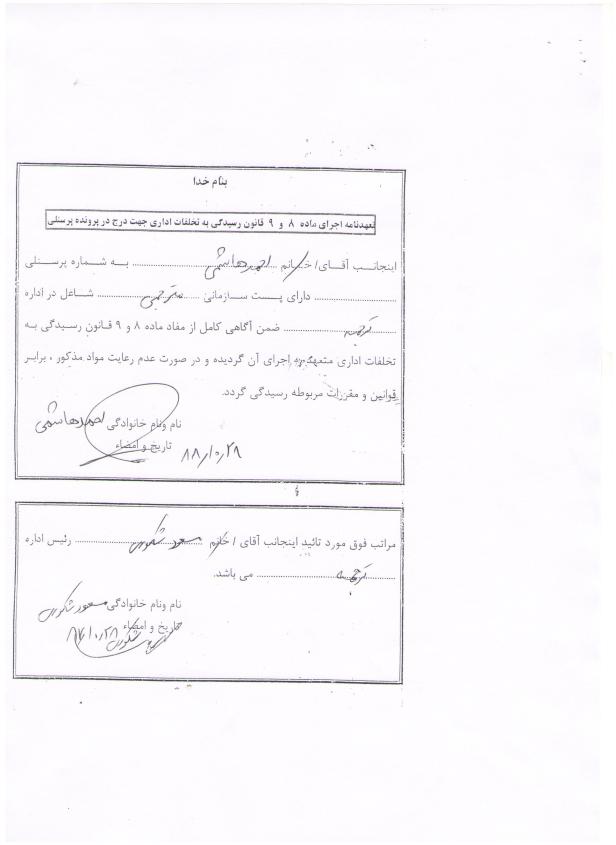 بنام خدا
تعهدنامه اجرای ماده ۸ و ۹ قانون رسیدگی به تخلفات اداری جهت درج در پرونده پرسنلی
اینجانب آقای/خانم احمد هاشمی به شماره پرسنلی
دارای پست سازمانی مترجمی شاغل در اداره
ترجمه ضمن آگاهی کامل از مفاد ماده ۸ و ۹ قانون رسیدگی به
تخلفات اداری متعهد به اجرای آن گردیده و در صورت عدم رعایت مواد مذکور ، برابر
قوانین و مقررات مربوطه رسیدگی گردد.
نام ونام خانوادگی احمد هاشمی
تاریخ و امضاء ۸۸/۱۰/۲۸
مراتب فوق مورد تائید اینجانب آقای / خانم مسعود شکوری رئیس اداره
ترجمه می باشد.
نام ونام خانوادگی مسعود شکوری
تاریخ و امضاء